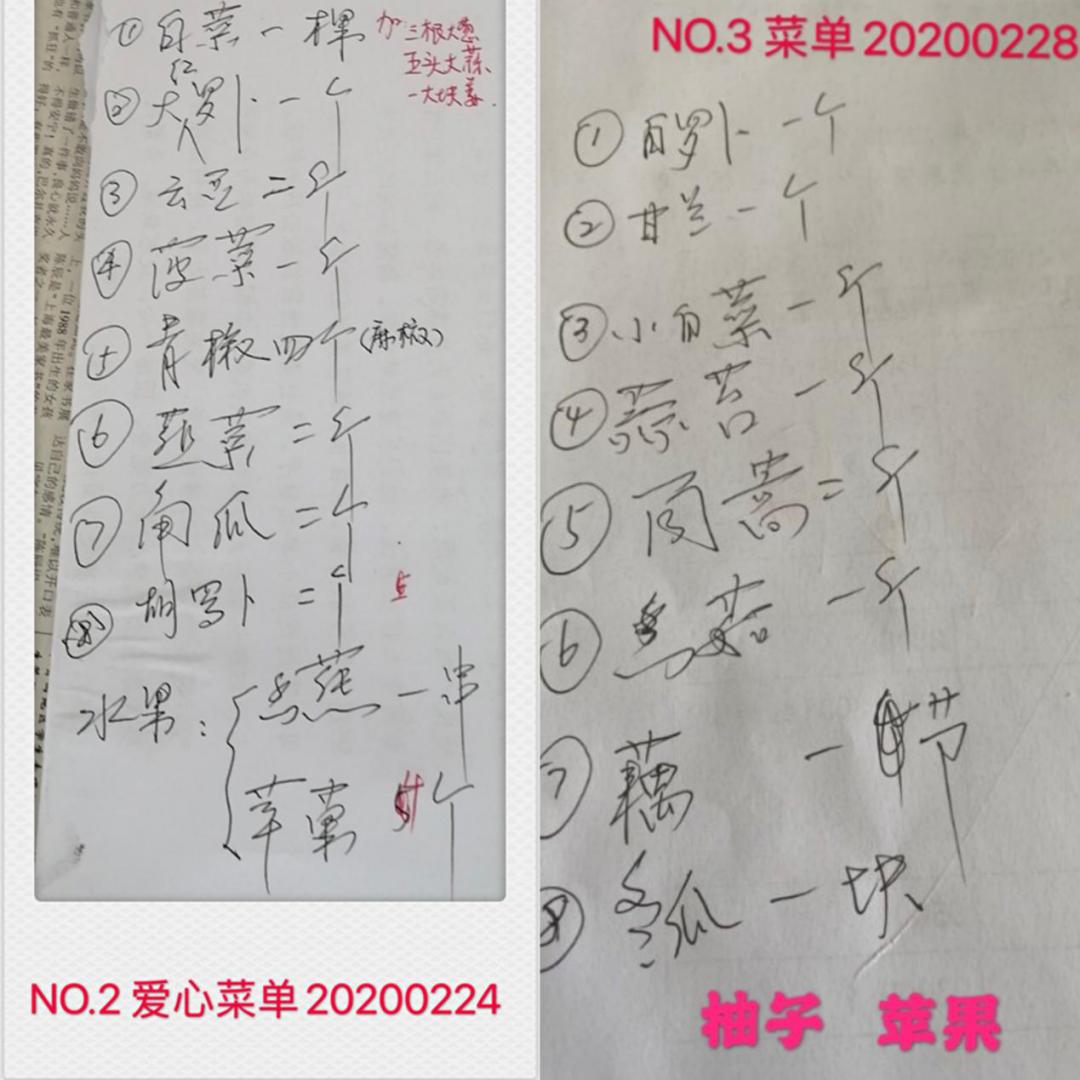 ①白菜一棵
加三根大葱
五头大蒜、
一大块姜.
红
②大罗卜一个
③云豆二个
④菠菜一个
⑤青椒四个(麻椒)
⑥韮菜二个
⑦角瓜二个
⑧胡罗卜二个
水果:香蕉一串
苹菓 5个
NO.2 爱心菜单 20200224
NO.3 菜单 20200228
①白罗卜一个
②甘兰一个
③小白菜一个
④蒜苔一个
⑤茼蒿二个
⑥香菇一个
⑦藕一节
⑧冬瓜一块
柚子 苹果